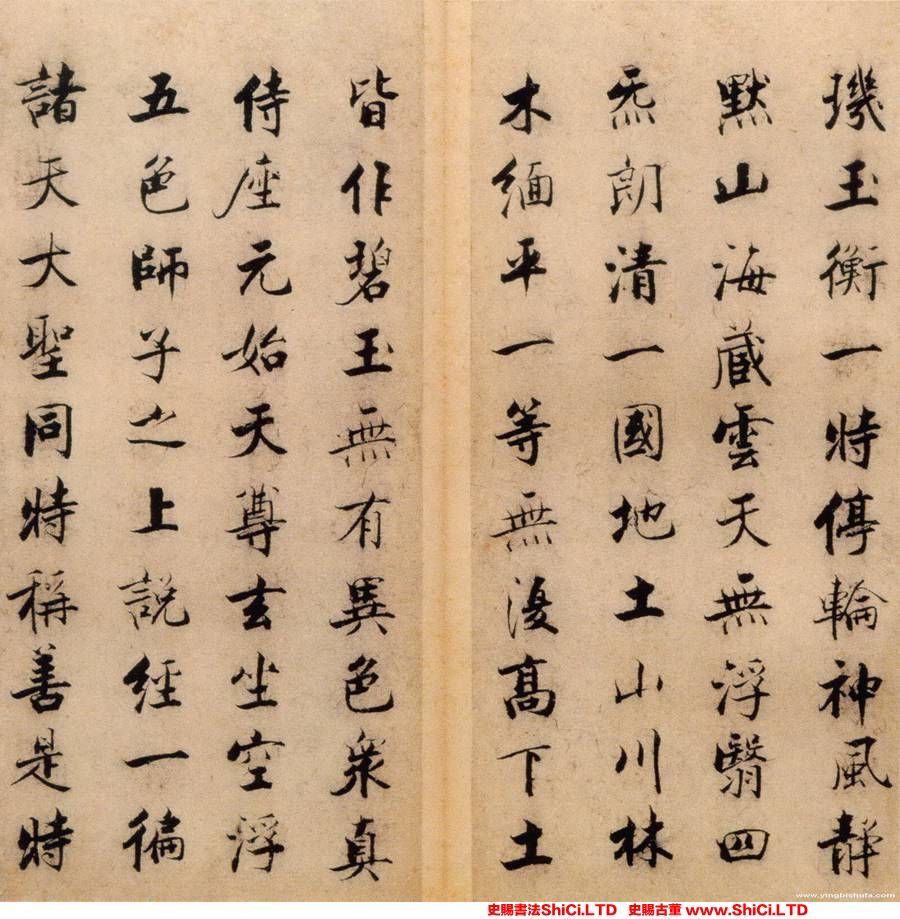 璣玉衡一時停輪神風靜
默山海藏雲天無浮翳四
炁朗清一國地土山川林
木緬平一等無復高下土
皆作碧玉無有異色衆真
侍座元始天尊玄坐空浮
五色師子之上説經一徧
諸天大聖同時稱善是時
www.yingbishufa.com
史賜書法ShiCi.LTD 史賜古董 www.ShiCi.LTD